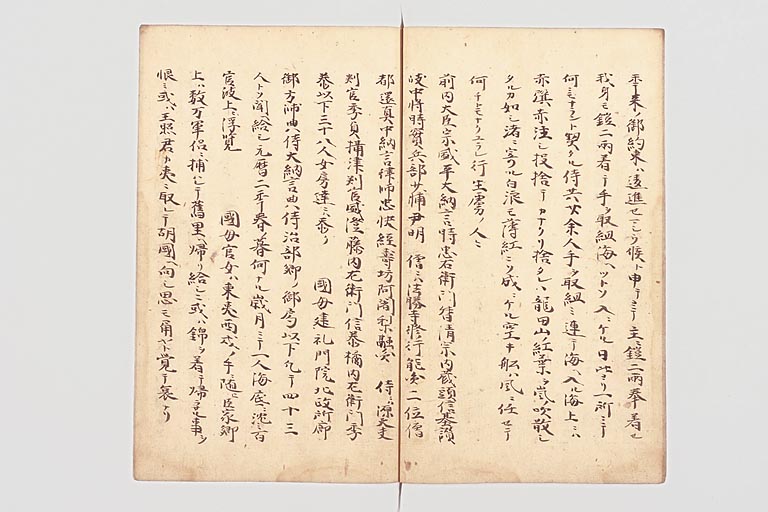 年来ノ御約束ハ違進セ候ト申テ主ニ鎧二両奉着セ
我身モ鎧二両着テ手ヲ取組海ヘツトソ入ニケル日比ヨリ一所ニテ
何ニモナラント契タル侍共廿余人手ヲ取組ミ連テ海ヘ入ル海上ニハ
赤旗赤注シ投捨テカナクリ捨タレハ龍田山ノ紅葉ヲ嵐吹散シ
タルカ如シ渚ニ寄スル白浪モ薄紅ニソ成ニケル空キ船ハ風ニ任セテ
何チトモナクユラレ行生虜ノ人々
前内大臣宗盛平大納言時忠右衛門督清宗内蔵頭信基讃
岐中将時實兵部少輔尹明 僧ニハ法勝寺修行能円二位僧
都還真中納言律師忠快経壽坊阿闍梨融円 侍ニハ源大夫
判官季貞摂津判官盛澄藤内左衛門信泰橘内左衛門季
泰以下三十八人女房達ニハ 國母建礼門院北政所廊
御方帥典侍大納言典侍治部卿ノ御局以下四十三
人トソ聞給シ元暦二年春暮何ナル歳月ニテ一人海底ニ沈ミ百
官波上ニ浮覧 國母官女ハ東夷西戎ノ手ニ随ヒ臣家卿
上ハ数万軍侶ニ捕ハレテ舊里ヘ帰リ給シニ或ハ錦ヲ着テ帰ラヌ事ヲ
恨ミ或ハ王照君カ夷ニ取レテ胡國ヘ向シ思モ角ヤト覚テ哀ナリ